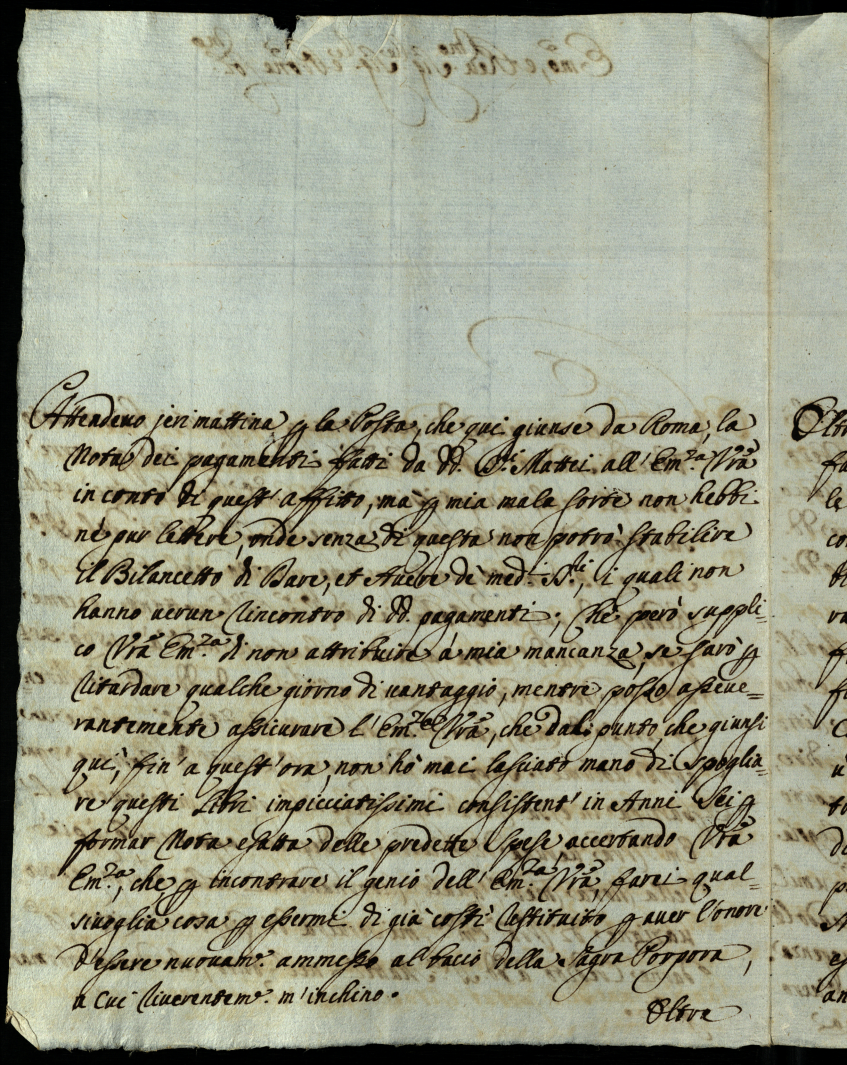 Attendeuo jeri mattina p la Posta, che qui giunse da Roma, la
Nota dei pagamenti fatti da dd. SS.ri Mattei all' Em.za Vrã
in conto di quest' affitto, ma p mia mala sorte non hebbi
nè pur lettere, onde senza di questa non potrò stabilire
il Bilancetto di Dare, et Auere de med.i SS.ri, i quali non
hanno uerun rincontro di dd. pagamenti; Che però suppli=
co Vrã Em.za di non attribuire à mia mancanza, se sarò p
ritardare qualche giorno di uantaggio, mentre posso asseue=
rantemente assicurare l' Em.za Vrã, che dal punto che giunsi
quì, fin' a quest' ora, non hò mai lasciato mano di spoglia=
re questi Libri impicciatissimi consistent' in Anni sei p
formar Nota esatta delle predette spese, accertando Vrã
Em.za, che p incontrare il genio dell' Em.za Vrã, farei qual=
siuoglia cosa p essermi di già costì restituito p auer l'onore
d'essere nuouam.e ammesso al bacio della Sagra Porpora,
a cui riuerentem.e m'inchino.
Oltre